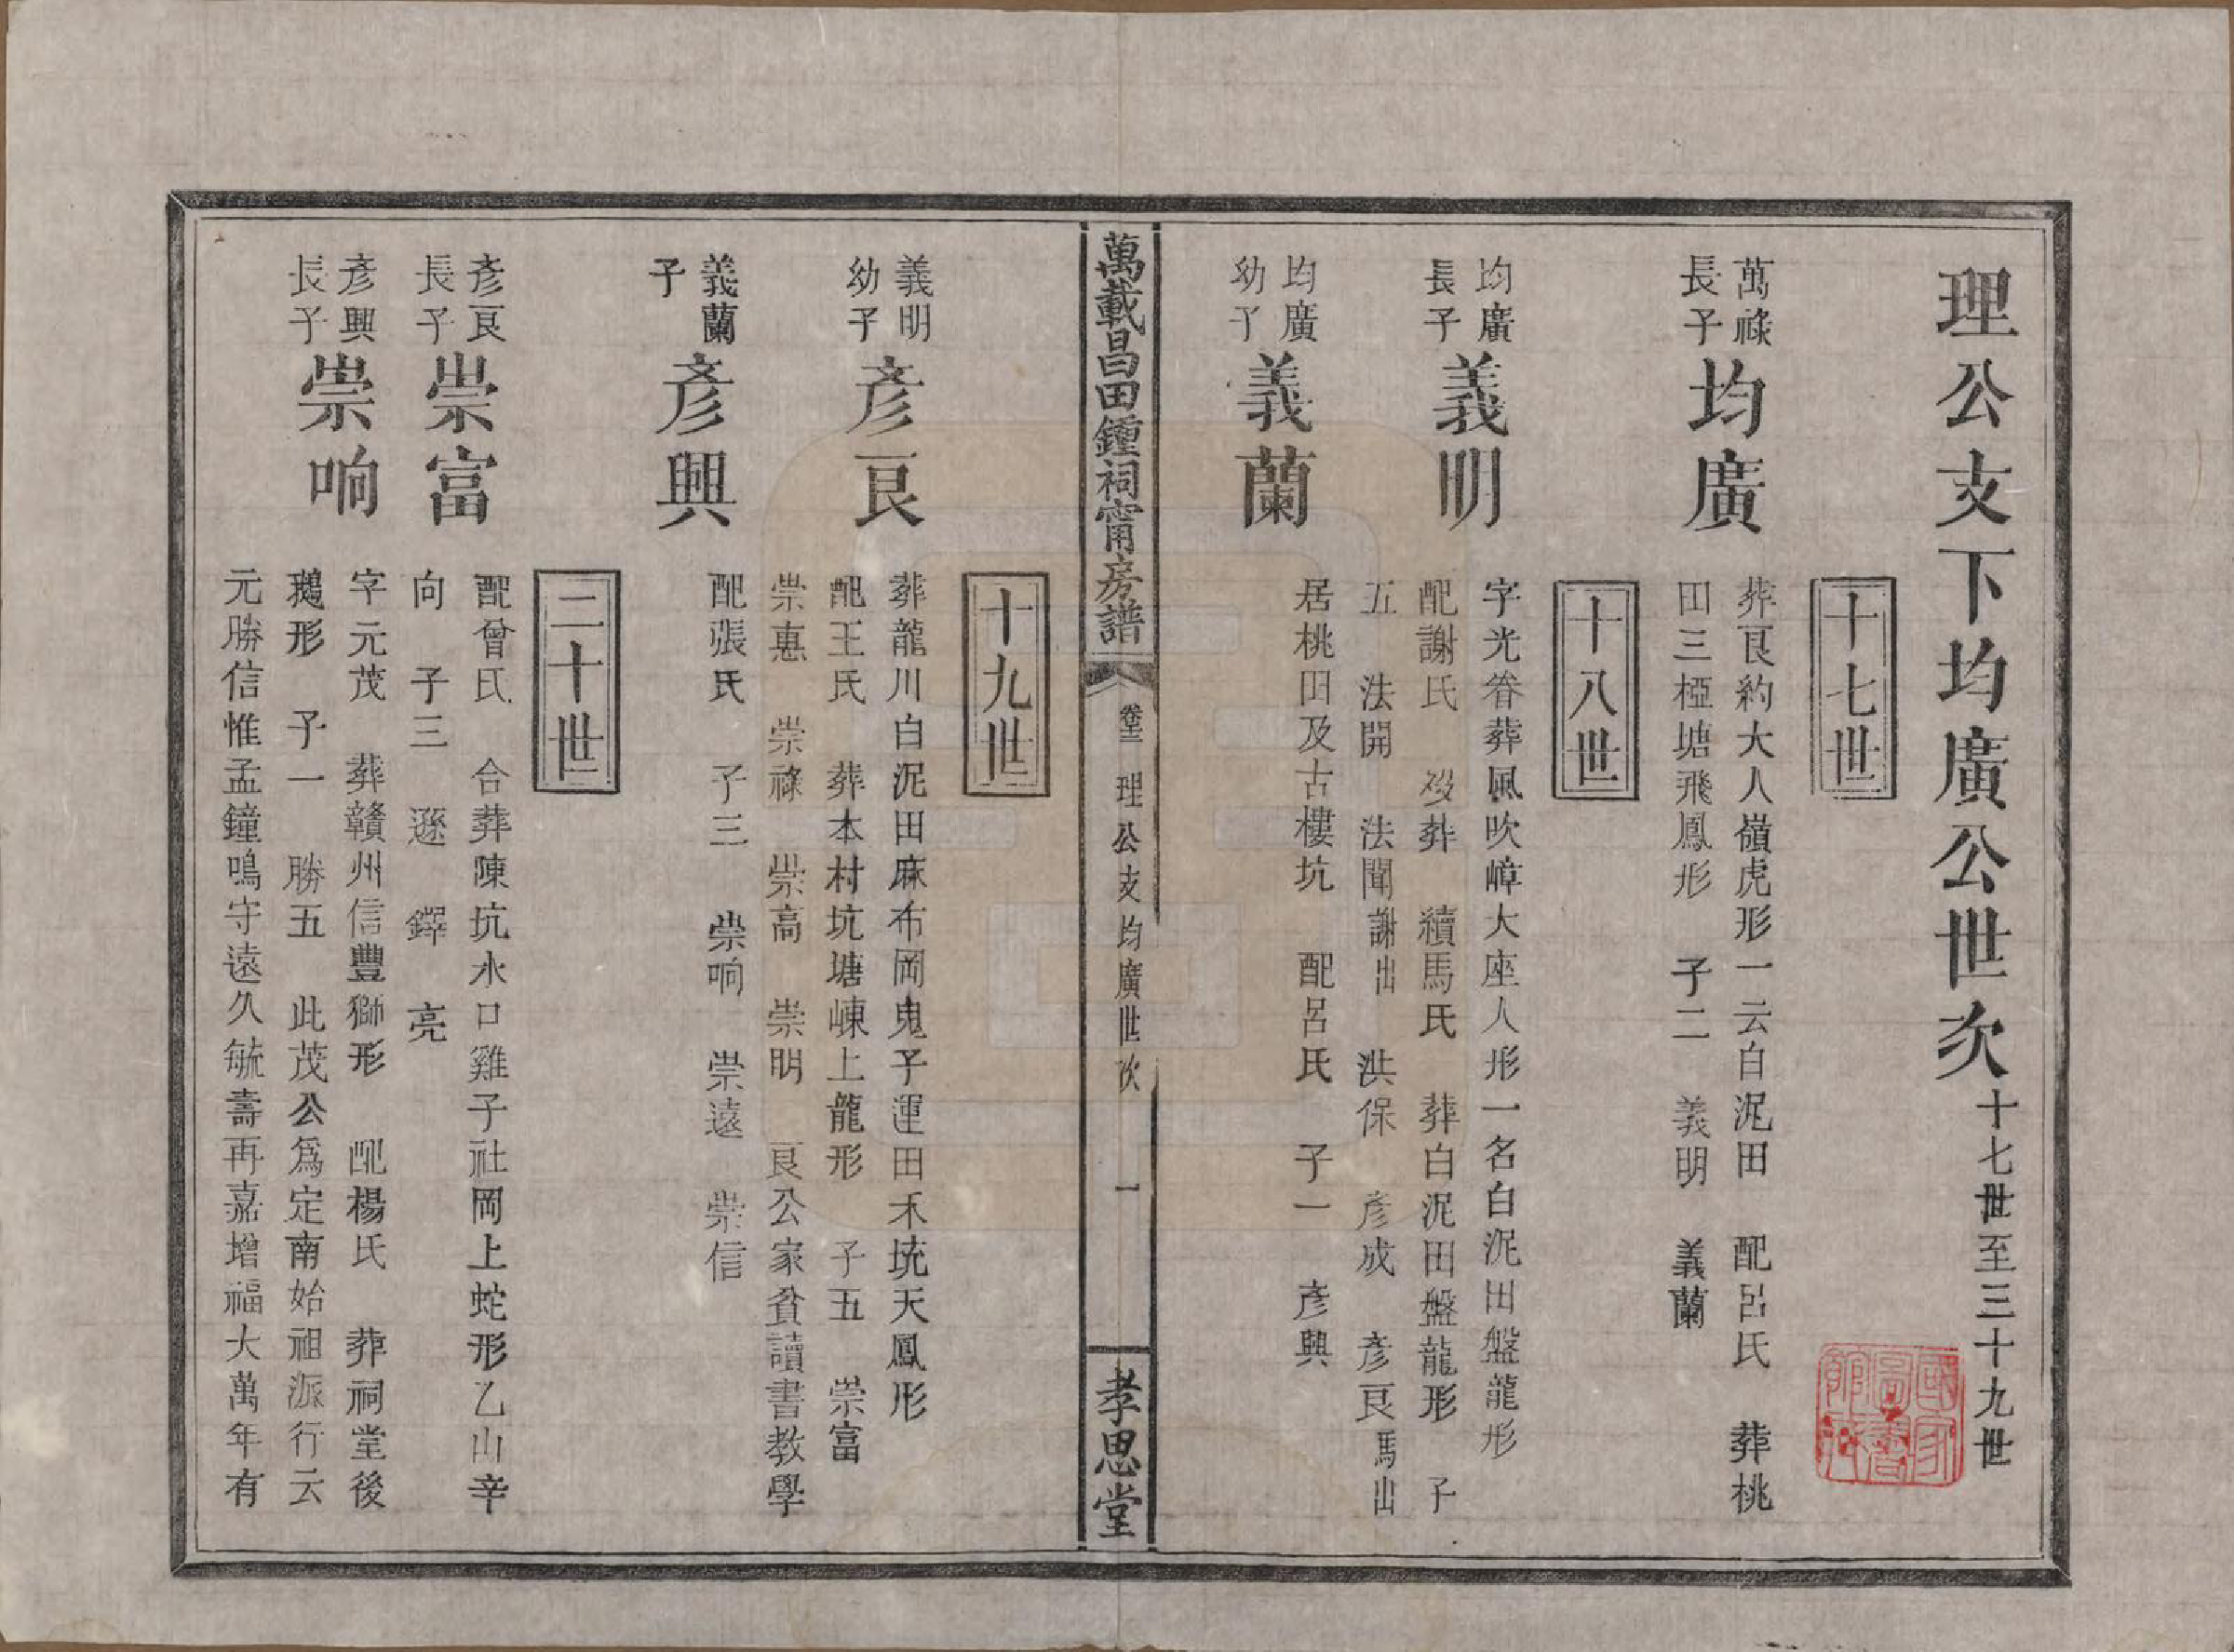 理公支下均廣公世次 十七世至三十九世
十七世
萬祿長子 均廣
葬艮約大人嶺虎形一云白泥田 配呂氏 葬桃
田三極塘飛鳳形 子二 義明 義蘭
十八世
均廣長子 義明
字光眷葬風吹嶂大座人形一名白泥田盤龍形
配謝氏 歿葬 續馬氏 葬白泥田盤龍形 子
五 法開 法聞謝出 洪保 彥成 彥良馬出
均廣幼子 義蘭
居桃田及古樓坑 配呂氏 子一 彥興
萬載昌田鍾祠甯房譜
卷三 理公支均廣世次 一
孝思堂
十九世
義明幼子 彥良
葬龍川白泥田麻布岡鬼子運田禾坑天鳳形
配王氏 葬本村坑塘崠上龍形 子五 崇富
崇惠 崇祿 崇高 崇明 良公家貧讀書教學
義蘭子 彥興
配張氏 子三 崇响 崇遠 崇信
二十世
彥良長子 崇富
配曾氏 合葬陳坑水口雞子社岡上蛇形乙山辛
向 子三 遜 鐸 亮
彥興長子 崇响
字元茂 葬贛州信豐獅形 配楊氏 葬祠堂後
鵝形 子一 勝五 此茂公爲定南始祖派行云
元勝信惟孟鐘鳴守遠久毓壽再嘉增福大萬年有
國家圖書館藏